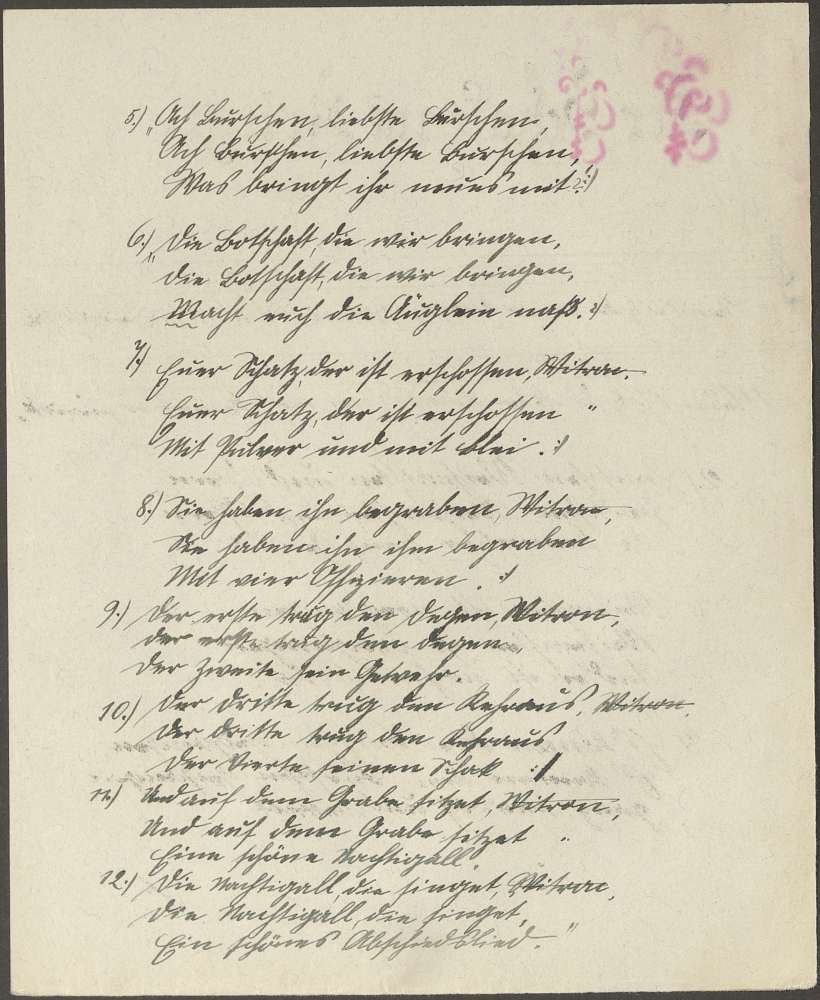 5.) "Ach Burschen, liebste Burschen,
Ach Burschen, liebste Burschen,
Was bringt ihr neues mit? :)
6.) "Die Botschaft, die wir bringen,
Die Botschaft, die wir bringen,
Macht euch die Äuglein naß. :)
7.) Euer Schatz, der ist erschossen, Witron.
Euer Schatz, der ist erschossen "
Mit Pulver und mit Blei. :)
8.) Sie haben ihn begraben, Witron,
Sie haben ihn ihm begraben
Mit vier Offizieren. :)
9.) Der erste trug den Degen, Witron,
der erste trug den Degen,
Der zweite sein Gewehr.
10.) Der dritte trug den Kehraus, Witron.
Der dritte trug den Kehraus
Der Vierte seinen Schak :)
11.) Und auf dem Grabe sitzet, Witron,
Und auf dem Grabe sitzet "
Eine schöne Nachtigall.
12.) Die Nachtigall, die singet, Witron,
Die Nachtigall, die singet,
Ein schönes Abschiedslied."